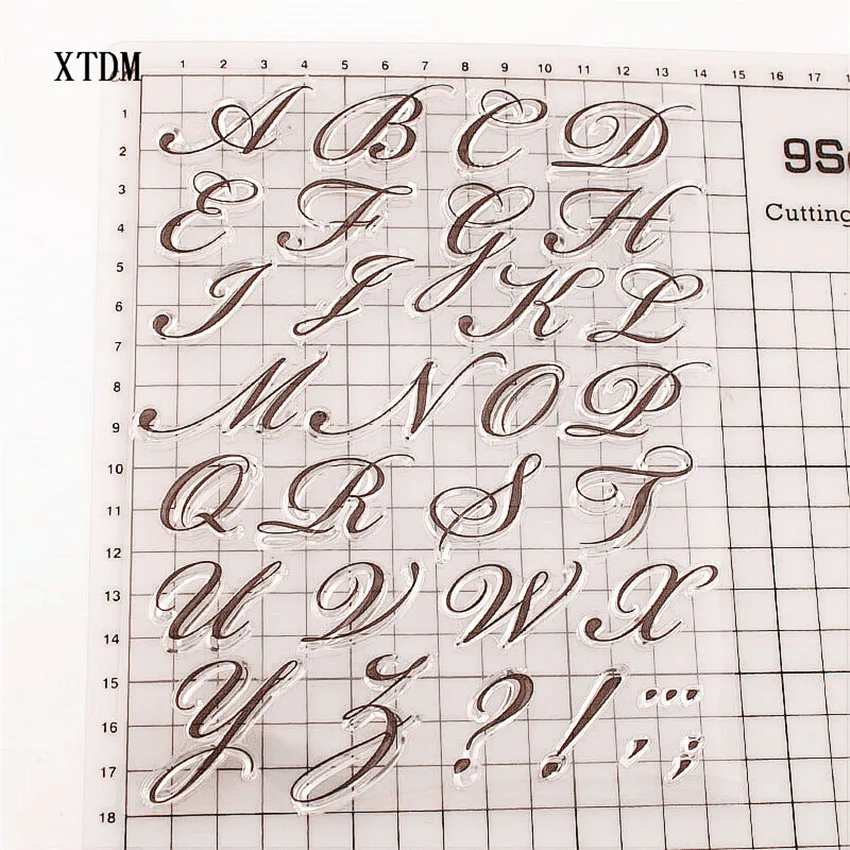 XTDM
1 2 3 4 5 6 7 8 9 10 11 12 13 14 15 16 17
1
2
3
4
5
6
7
8
9
10
11
12
13
14
15
16
17
18
A B C D
E F G H
I J K L
M N O P
Q R S T
U V W X
Y Z ? ! ... , ;
9S
Cutting